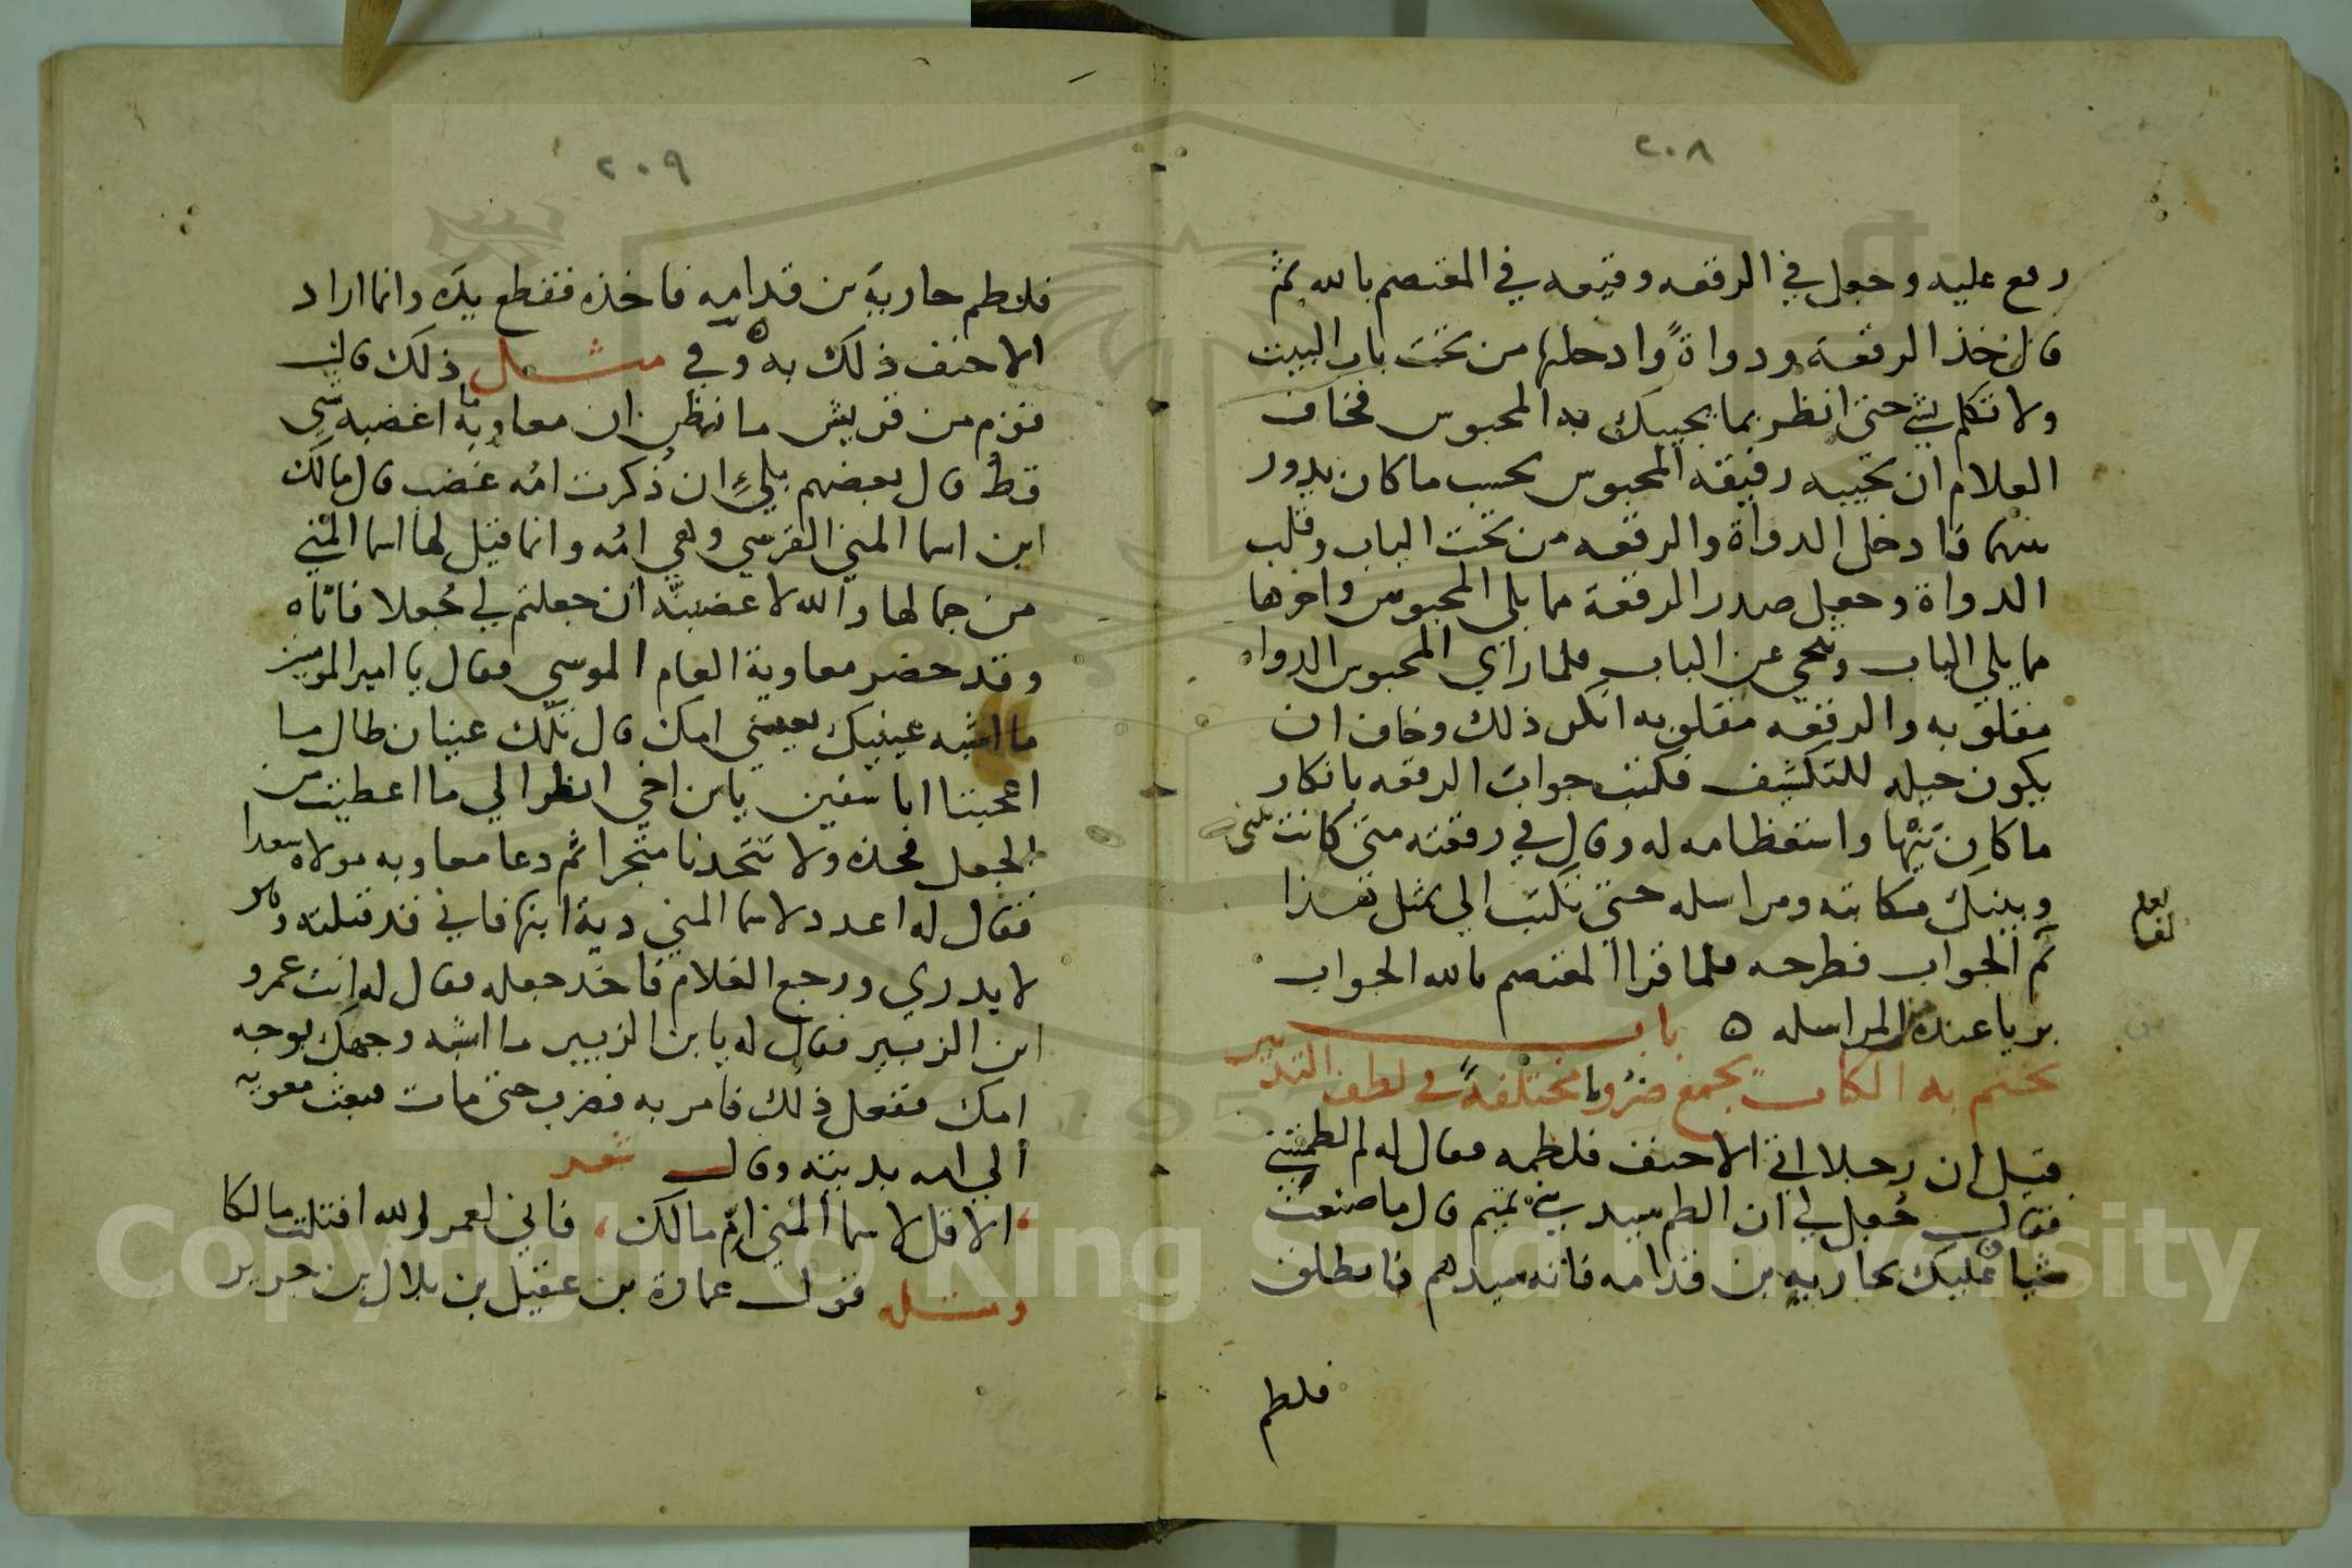 ٢٠٨
رفع عليه وجعل في الرقعه وقيعه في المعتصم بالله ثم
قال خذ الرقعة ودواةً وادخلها من تحت باب البيت
ولا تكلم بشي حتى انظر بما يجيبك به المحبوس فخاف
الغلام ان يجيبه رفيقه المحبوس بحسب ما كان يدور
بينهما فادخل الدواة والرقعه من تحت الباب وقلب
الدواة وجعل صدر الرقعة مما يلي المحبوس واخرها
مما يلي الباب وتنحي عن الباب فلما راي المحبوس الدواه
مقلوبه والرقعه مقلوبه انكر ذلك وخاف ان
يكون حيله للتكشيف فكتب جواب الرقعه بانكار
ما كان فيها واستعظامه له وقال في رقعته متى كانت بيني
وبينك مكاتبه ومراسله حتى تكتب الي بمثل هذا
ثم الجواب فطرحه فلما قرا المعتصم بالله الجواب
بريا عنده المراسله ه باب
نختم به الكتاب يجمع ضروبا مختلفةً في لطف التدبير
قيل ان رجلا اتى الاحنف فلطمه فقال له لم لطمتني
فقال جُعل لي ان الطم سيد بني تميم قال ما صنعت
شيا فعليك بحاربيه بن قدامه فانه سيدهم فانطلق
فلطم
٢٠٩
فلطم حاربيه بن قدامه فاخذه فقطع يده وانما اراد
الاحنف ذلك به ه وفي مثل ذلك قال
قوم من قريش ما نظن ان معاوية اغضبه شي
قط قال بعضهم بلي ان ذُكرت امُه غضب قال مالك
ابن اسما المني القرشي وهي امُه وانما قيل لها اسما المني
من جمالها والله لاغضبنّه ان جعلتم لي جُعلا فاتاه
وقد حضر معاوية العام الموسم فقال يا امير المومنين
ما اشبه عينيك بعيني امك قال تلك عينان طال ما
اعجبتا ابا سفين يابن اخي انظر الي ما اعطيت من
الجعل فخذه ولا تتخدنا متجرا ثم دعا معاويه مولاه سعدا
فقال له اعدد لاسما المني دية ابنها فاني قد قتلته وهو
لا يدري ورجع الغلام فاخد جعله فقال له انت عمرو
ابن الزبير فقال له يابن الزبير ما اشبه وجهك بوجه
امك ففعل ذلك فامر به فضرب حتى مات فبعث معويه
الي امه بديته وقال شعر
الا قل لاسما المني امّ مالك ، فاني لعمر الله اقتلت مالكا
ومثله قول عمارة بن عقيل بن بلال بن جرير
Copyright © King Saud University
1957